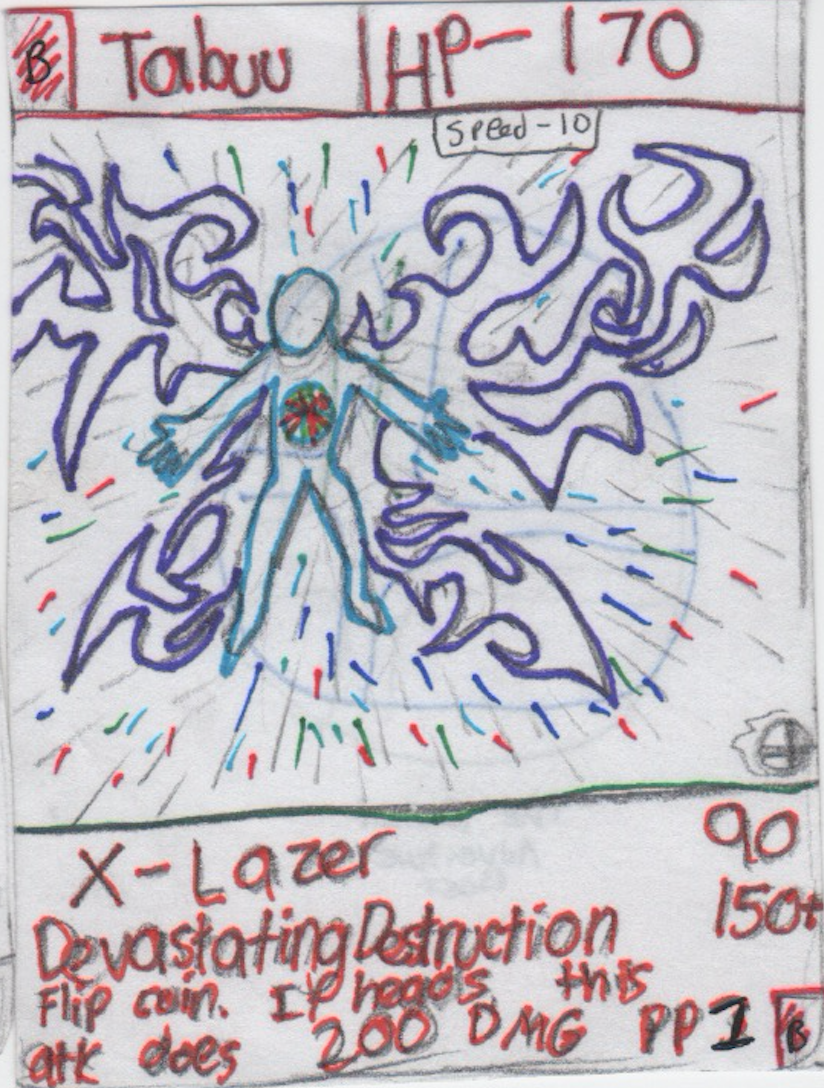 B Tabuu HP-170
Speed-10
X-Lazer 90
Devastating Destruction 150+
Flip coin. If heads this
atk does 200 DMG PP 1 B